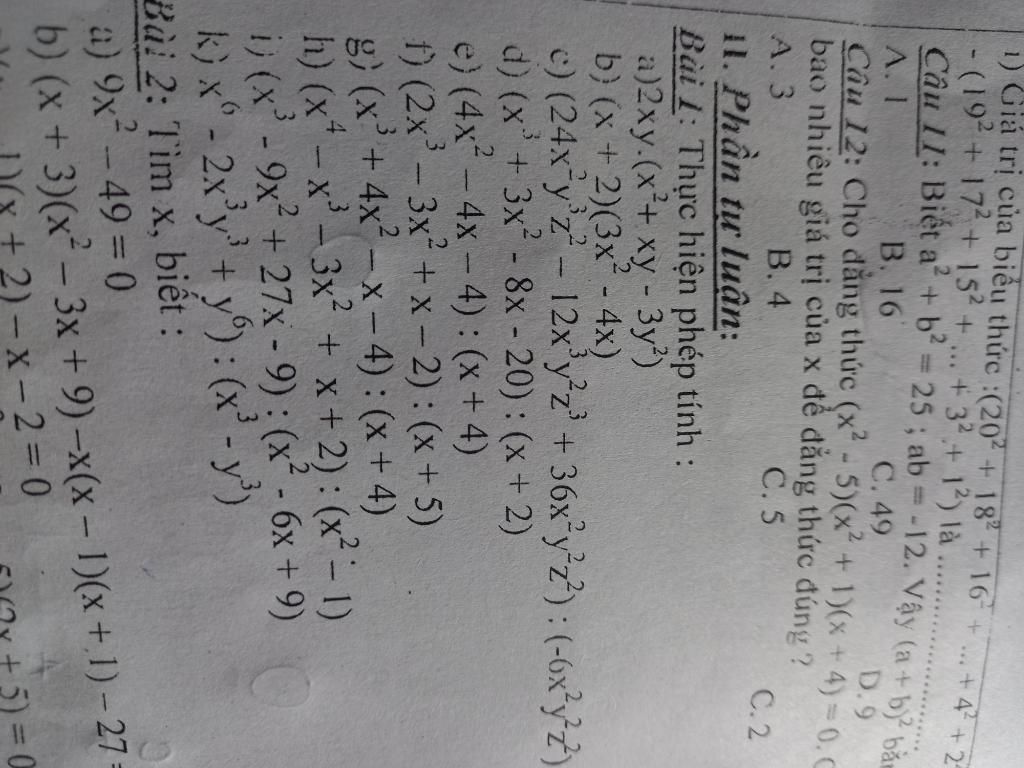 i) Giá trị của biểu thức :(20² + 18² + 16² + ... + 4² + 2²
- (19² + 17² + 15² + ... + 3² + 1²) là ....................
Câu 11: Biết a² + b² = 25 ; ab = -12. Vậy (a + b)² bằn
A. 1 B. 16 C. 49 D. 9
Câu 12: Cho đẳng thức (x² - 5)(x² + 1)(x + 4) = 0. C
bao nhiêu giá trị của x để đẳng thức đúng ?
A. 3 B. 4 C. 5 C. 2
II. Phần tư luân:
Bài 1: Thực hiện phép tính :
a)2xy.(x² + xy - 3y²)
b) (x + 2)(3x² - 4x)
c) (24x²y³z² – 12x³y²z³ + 36x²y²z²) : (-6x²y²z²)
d) (x³ + 3x² - 8x - 20) : (x + 2)
e) (4x² – 4x – 4) : (x + 4)
f) (2x³ – 3x² + x – 2) : (x + 5)
g) (x³ + 4x² – x – 4) : (x + 4)
h) (x⁴ – x³ – 3x² + x + 2) : (x² – 1)
i) (x³ - 9x² + 27x - 9) : (x² - 6x + 9)
k) x⁶ - 2x³y³ + y⁶) : (x³ - y³)
Bài 2: Tìm x, biết :
a) 9x² – 49 = 0
b) (x + 3)(x² – 3x + 9) –x(x – 1)(x + 1) – 27 =
1)(x + 2) – x – 2 = 0
5)(2x + 5) = 0